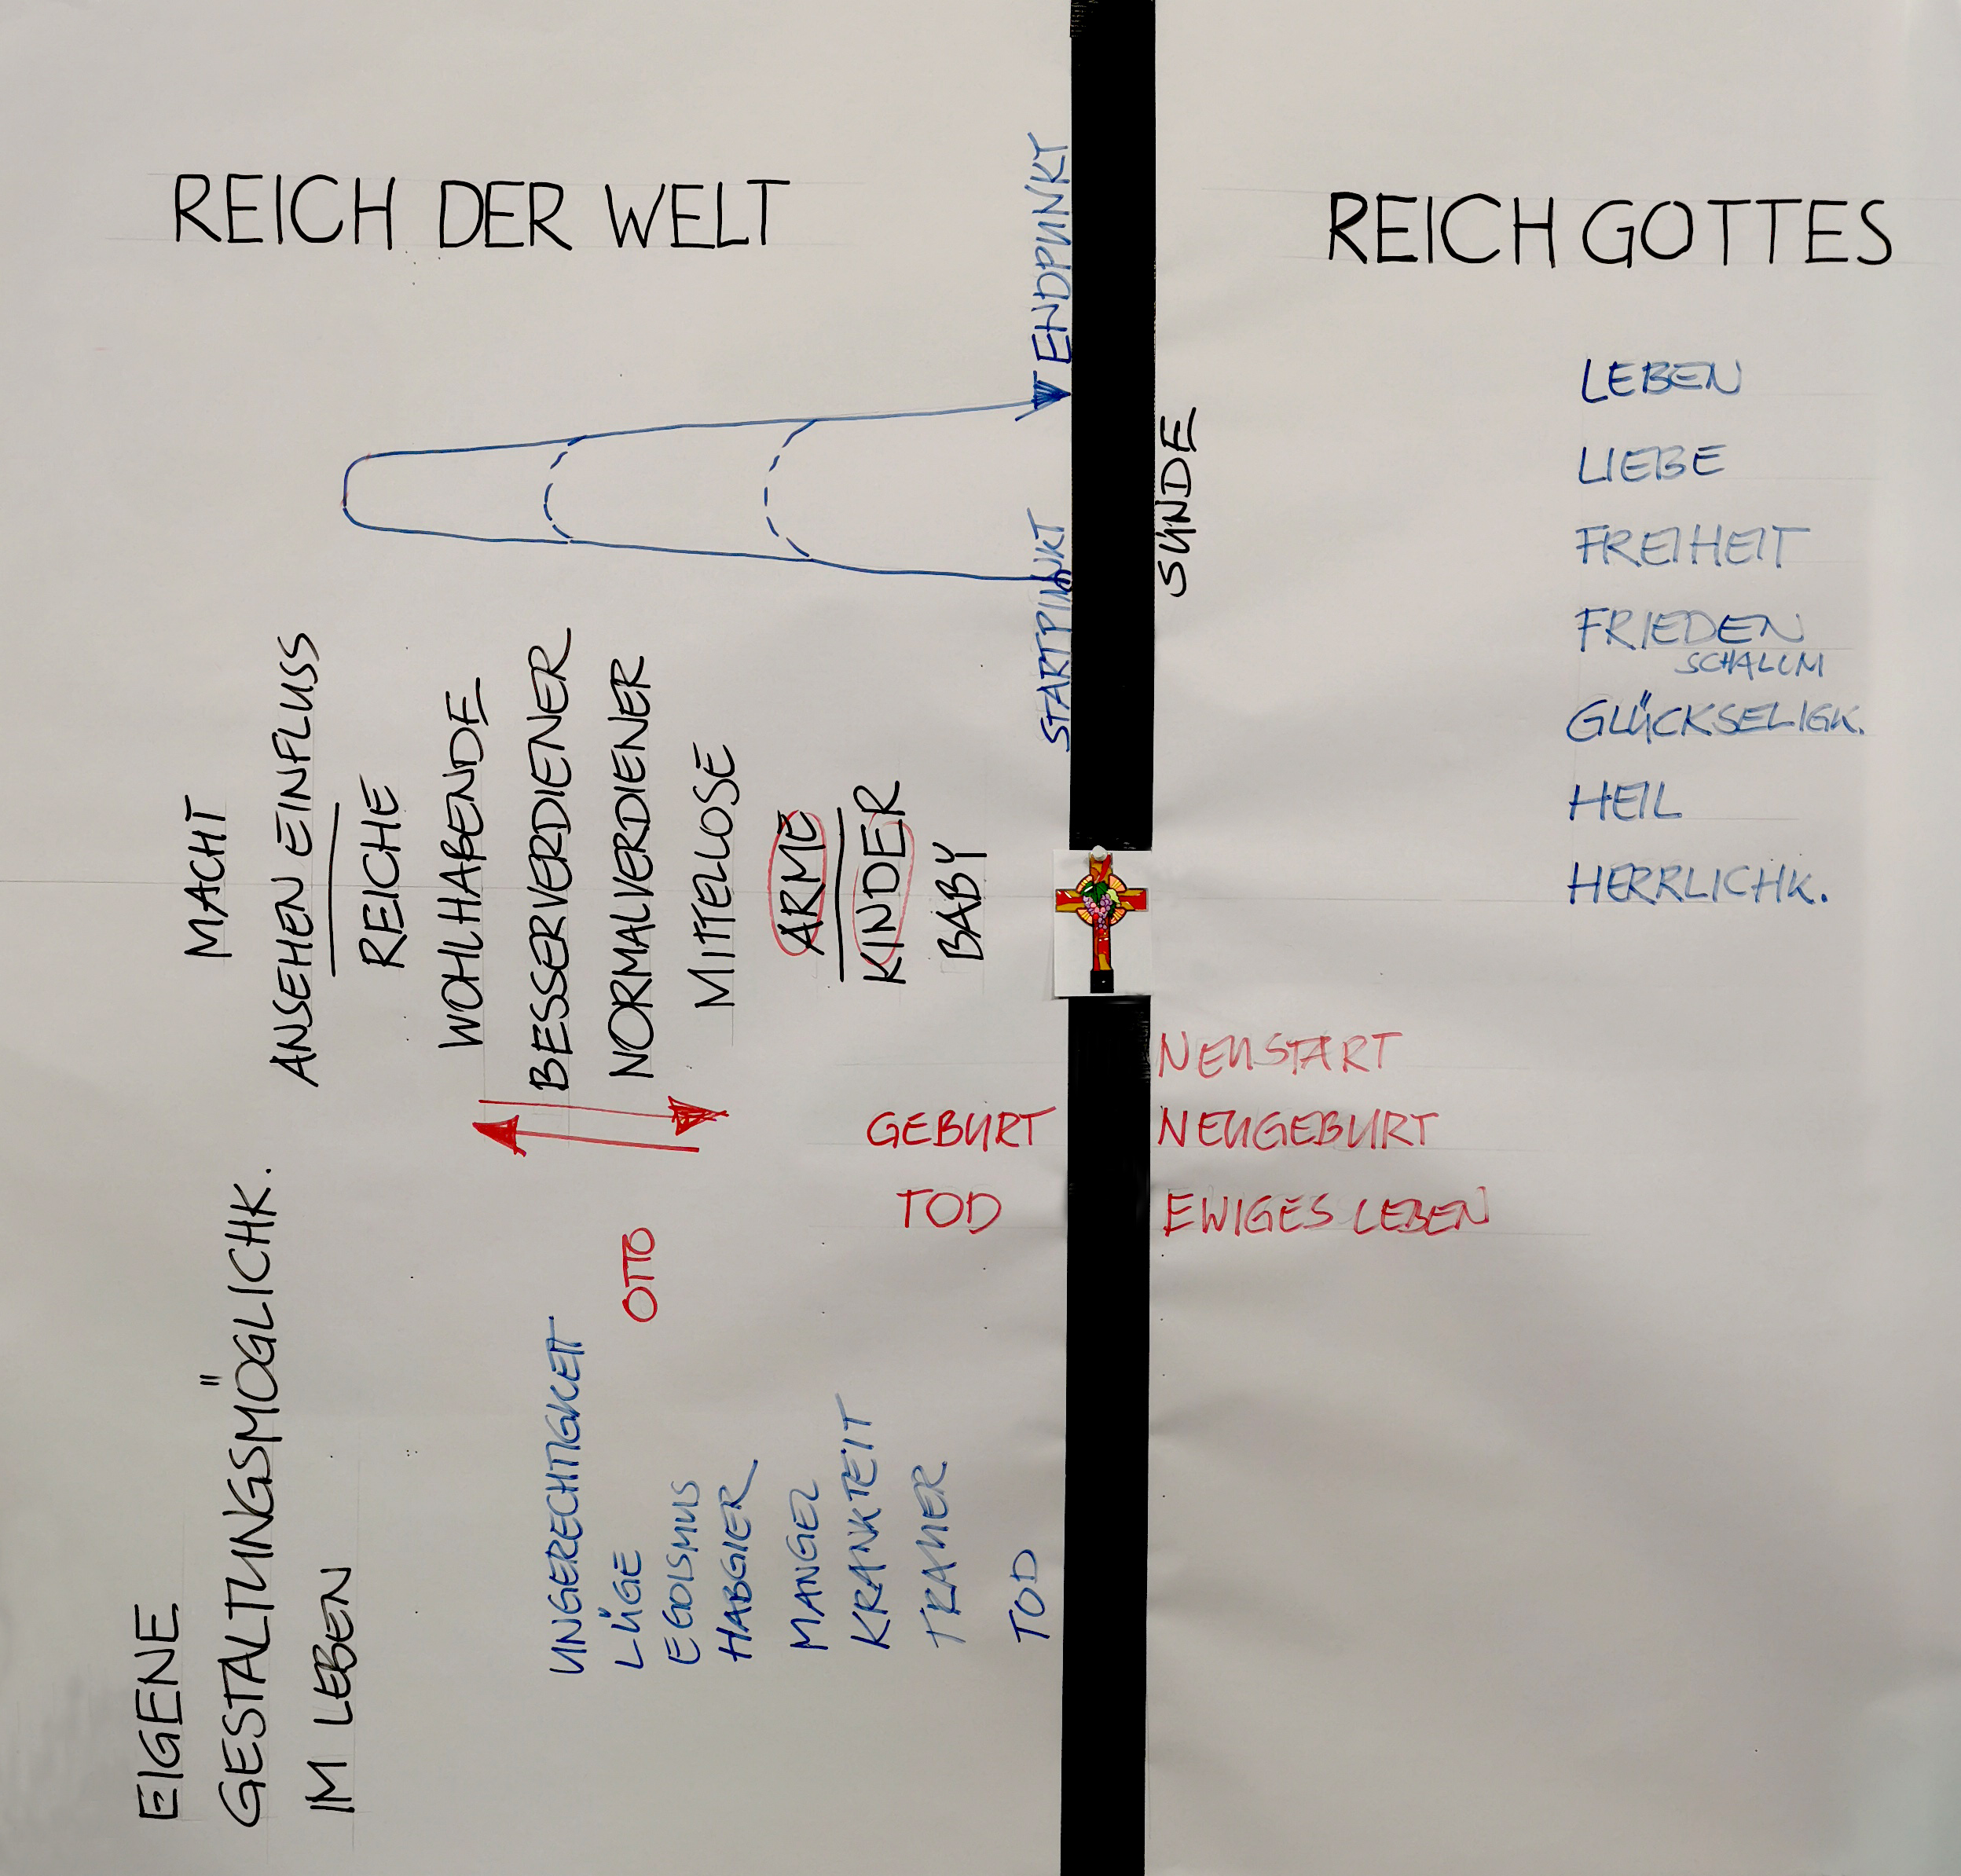 REICH DER WELT
REICH GOTTES
ENDPUNKT
STARTPUNKT
SÜNDE
LEBEN
LIEBE
FREIHEIT
FRIEDEN
SCHALLM
GLÜCKSELIGK.
HEIL
HERRLICHK.
MACHT
ANSEHEN EINFLUSS
REICHE
WOHLHABENDE
BESSERVERDIENER
NORMALVERDIENER
MITTELLOSE
ARME
KINDER
BABY
NEUSTART
GEBURT
NEUGEBURT
TOD
EWIGES LEBEN
OTTO
EIGENE
GESTALTUNGSMÖGLICHK.
IM LEBEN
UNGERECHTIGKEIT
LÜGE
EGOISMUS
HABGIER
MANGEL
KRANKHEIT
TRAUER
TOD